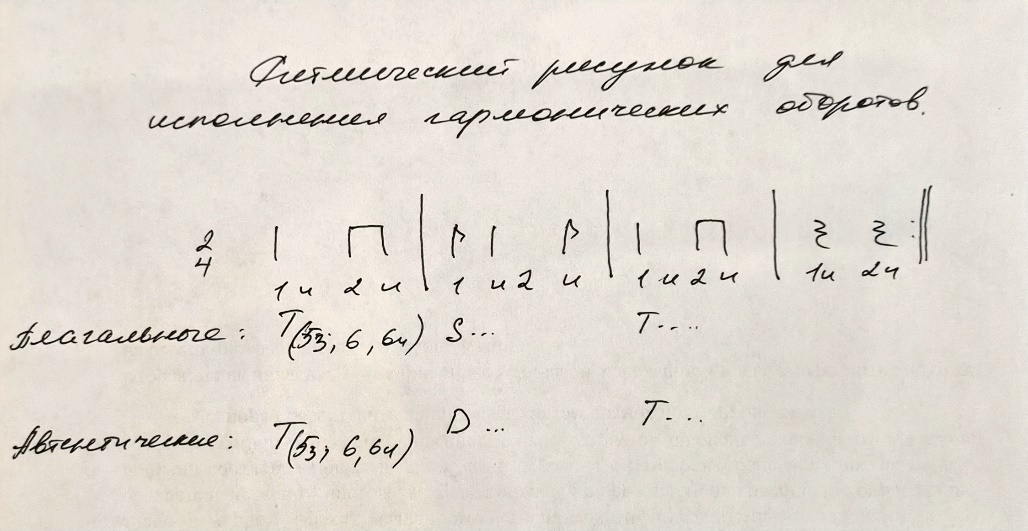 Ритмический рисунок для
исполнения гармонических оборотов.
2
4
1 и 2 и 1 и 2 и 1 и 2 и 1и 2и
Плагальные: T(53, 6, 64) S... T....
Автентические: T(53, 6, 64) D ... T....